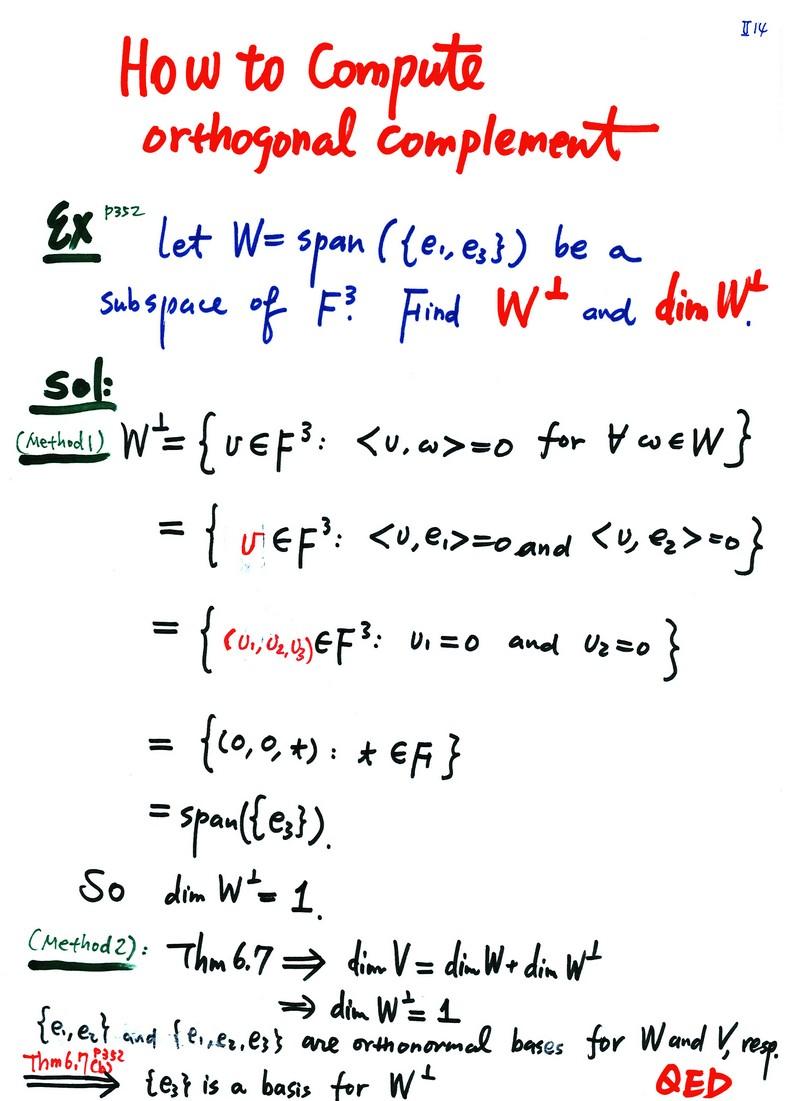 II 14
How to Compute
orthogonal complement
Ex P352 let W= span({e₁,e₃}) be a
subspace of F³. Find W^⊥ and dim W^⊥.
Sol:
(Method1) W^⊥= {υ∈F³: <υ,ω>=0 for ∀ ω∈W}
= { υ ∈F³: <υ,e₁>=0 and <υ,e₂>=0}
= {(υ₁,υ₂,υ₃)∈F³: υ₁=0 and υ₂=0}
= {(0,0,*): * ∈F}
= span({e₃}).
So dim W^⊥= 1.
(Method2): Thm 6.7 ⟹ dim V = dim W + dim W^⊥
⟹ dim W^⊥= 1
{e₁,e₂} and {e₁,e₂,e₃} are orthonormal bases for W and V, resp.
Thm6.7 P352 (b) ⟹ {e₃} is a basis for W^⊥ QED